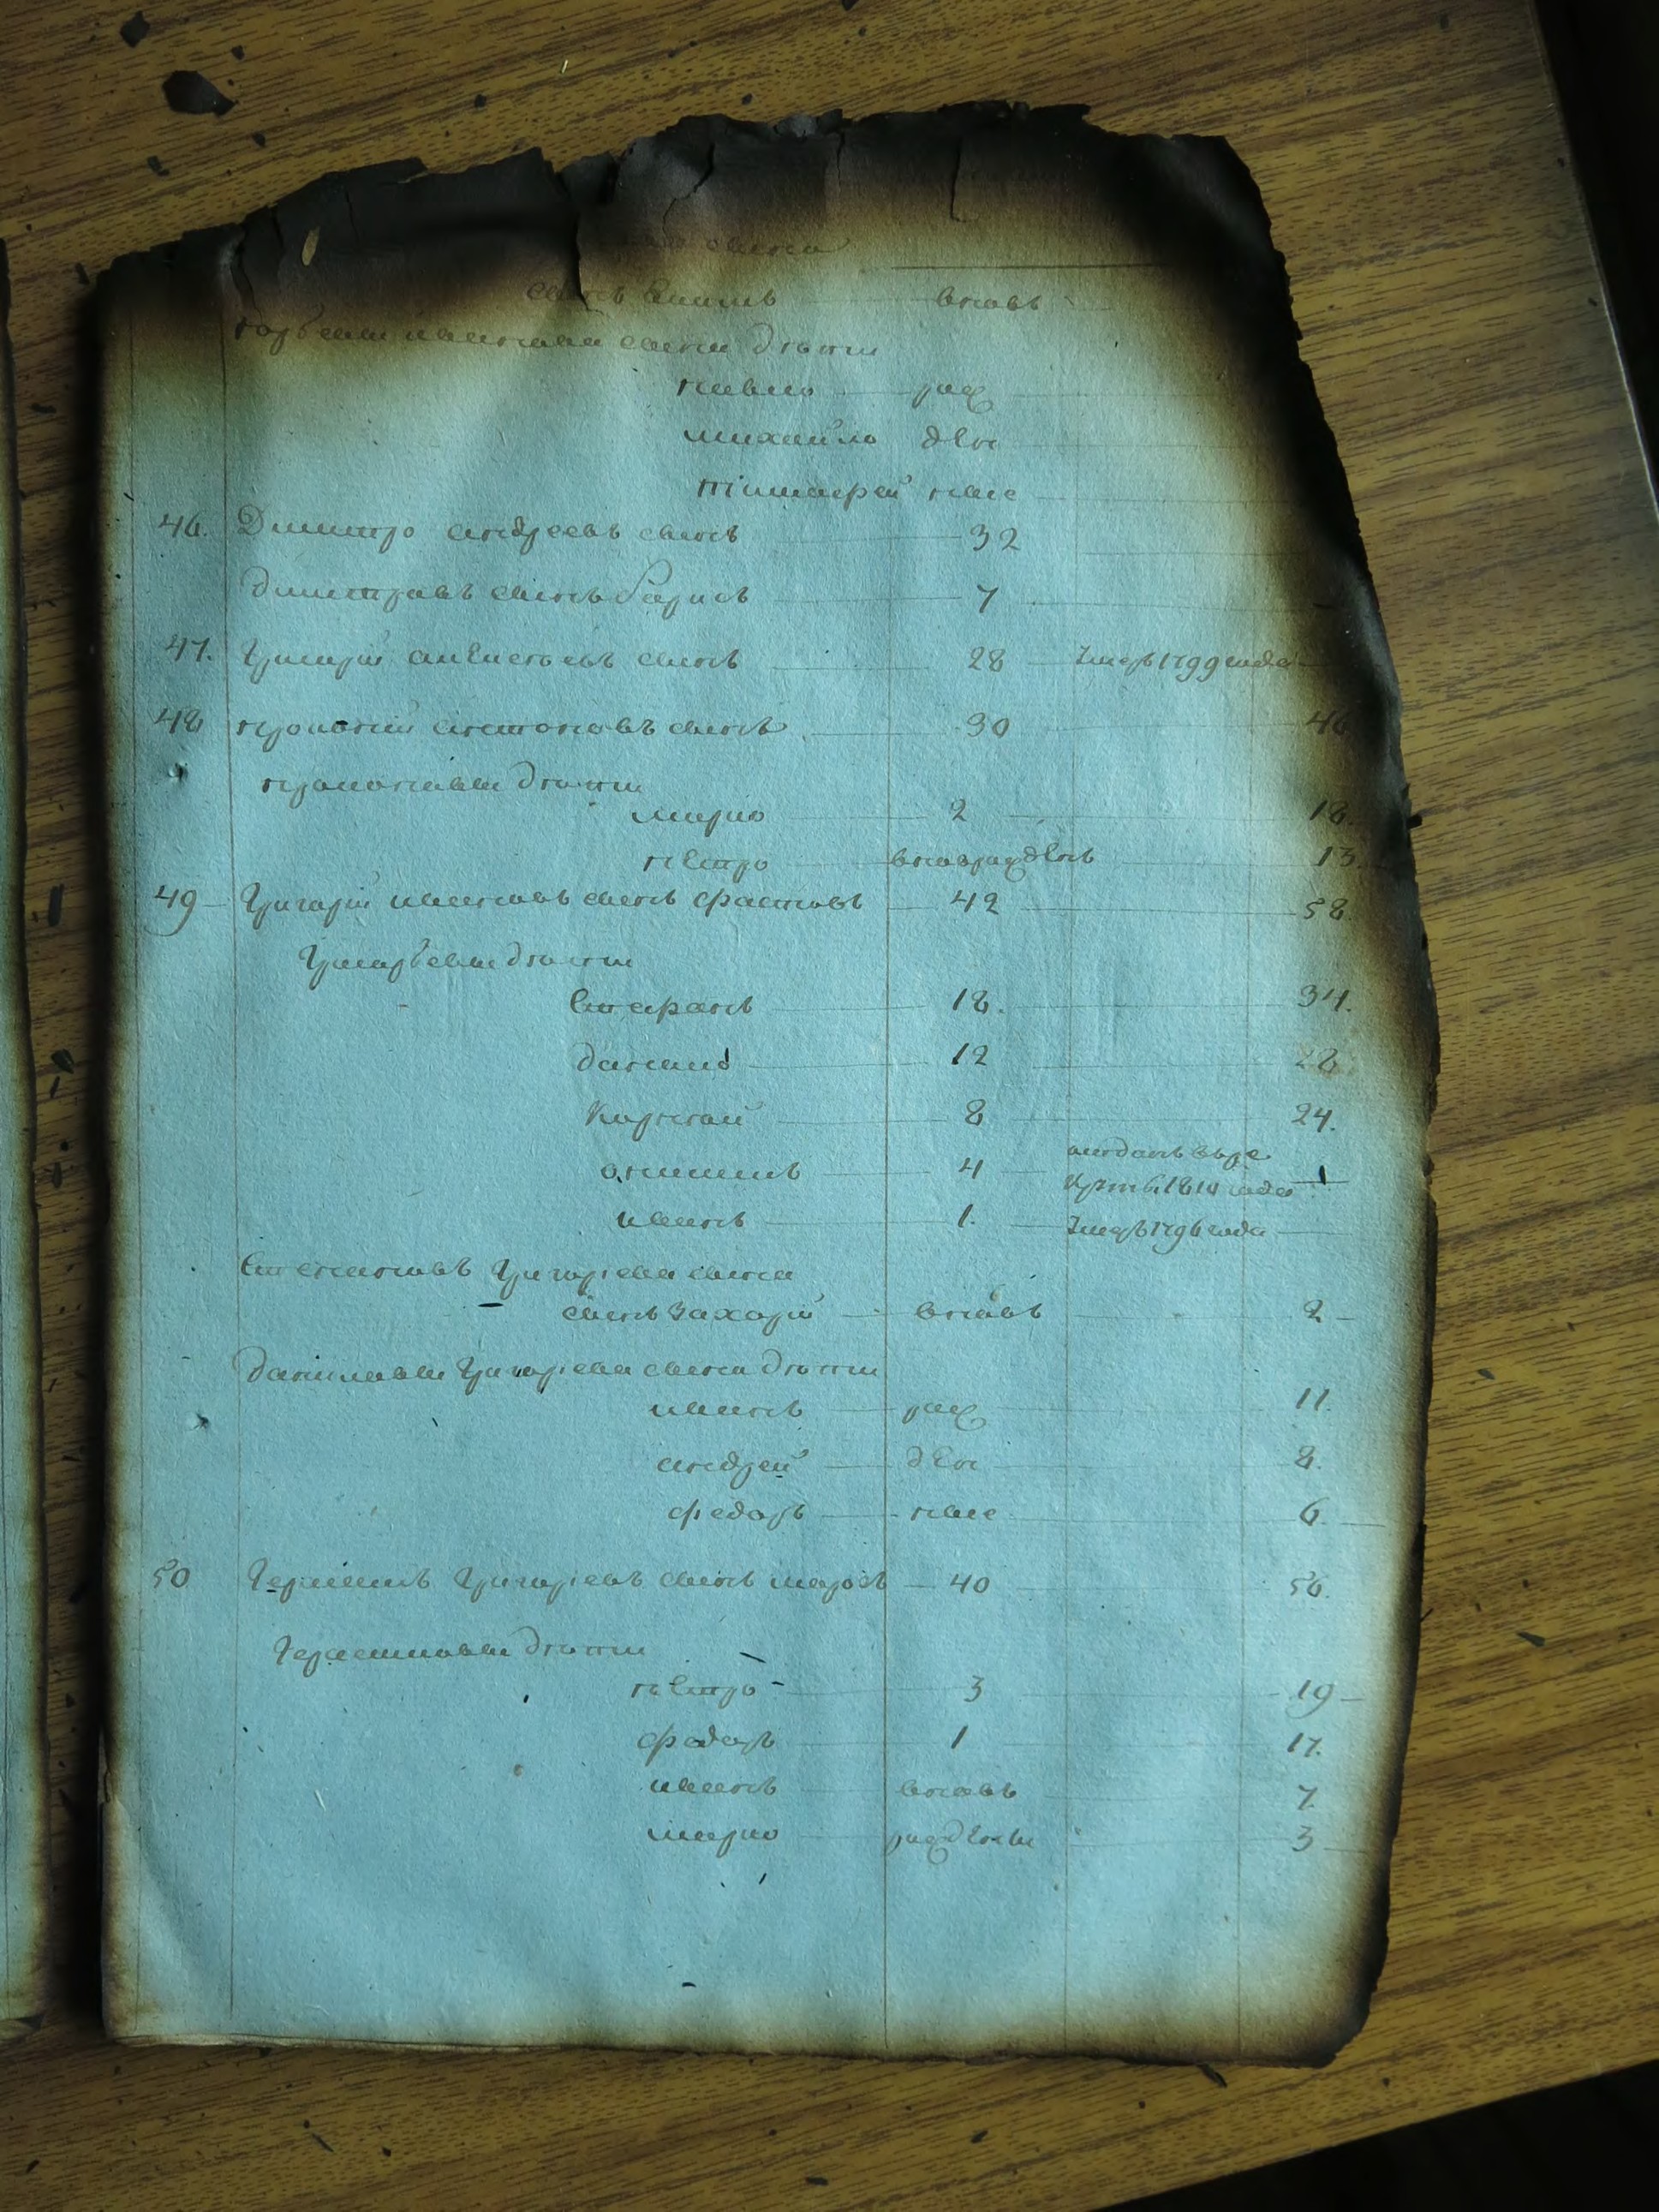 сына
сынъ вновь
ивановы сына дѣти
павло рож
михайло ден
тимофей ные
46. Дмитро андреевъ сынъ 32
Дмитровъ сынъ Борисъ 7
47. Григорий сынъ 28 Умеръ 1799 года
48 прокопий антоновъ сынъ 30 46
прокоповы дѣти
марко 2 18.
петро вновърожденъ 13.
49 Григорий ивановъ сынъ фастовъ 42 58.
Григорьевы дѣти
Степанъ 18. 34.
данило 12 28
Корней 8 24.
онисимъ 4 отданъ въ ре
круты 1810 года
иванъ 1. Умеръ 1796 года
Степановъ Григорьева сына
сынъ Захарий вновь 2
даниловы Григорьева сына дѣти
иванъ рож 11.
андрей ден 8.
федоръ ные 6.
50 Герасимъ Григорьевъ сынъ 40 56.
Герасимовы дѣти
петро 3 19
федоръ 1 17.
иванъ вновь 7.
марко рожденны 3